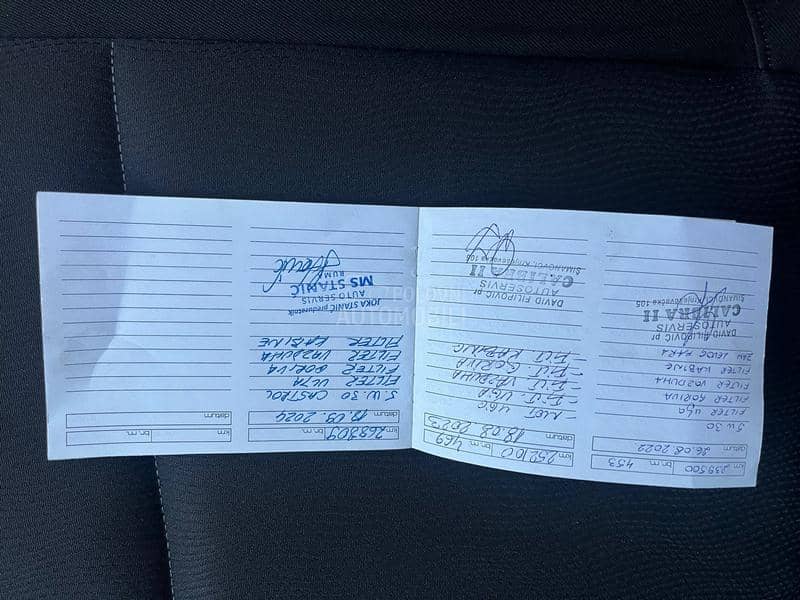 km 239500 br.m. 453
datum 26.08.2022
5W30
FILTER ULJA
FILTER GORIVA
FILTER VAZDUHA
FILTER KABINE
DAVID FILIPOVIĆ pr
AUTOSERVIS
CALIBRA II
ŠIMANOVCI, Krnješevačka 105
km 252100 br.m. 469
datum 18.08.2023
- FILT. ULJA
- FILT. VAZDUHA
- FILT. GORIVA
- FILT. KABINE
DAVID FILIPOVIĆ pr
AUTOSERVIS
CALIBRA II
ŠIMANOVCI, Krnješevačka 105
km 268309 br.m.
datum 12.09.2024
5.W.30 CASTROL
FILTER ULJA
FILTER GORIVA
FILTER VAZDUHA
FILTER KABINE
JOKA STANIĆ preduzetnik
AUTO SERVIS
MS STANIĆ
RUMA
km br.m.
datum
POLOVNI
AUTOMOBILI